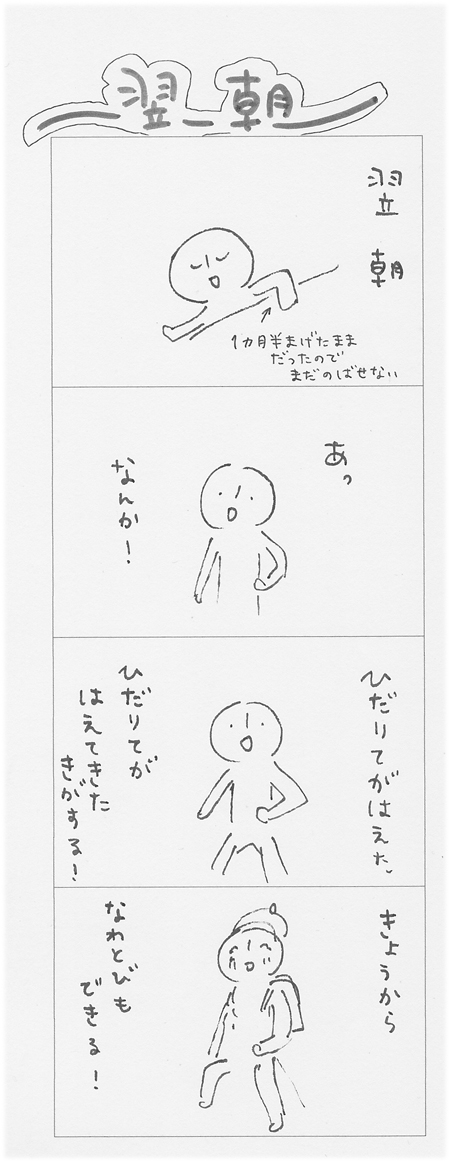 翌朝
翌朝
1カ月半まげたまま
だったので
まだのばせない
あっ
なんか!
ひだりてがはえた。
ひだりてが
はえてきた
きがする!
きょうから
なわとびも
できる!